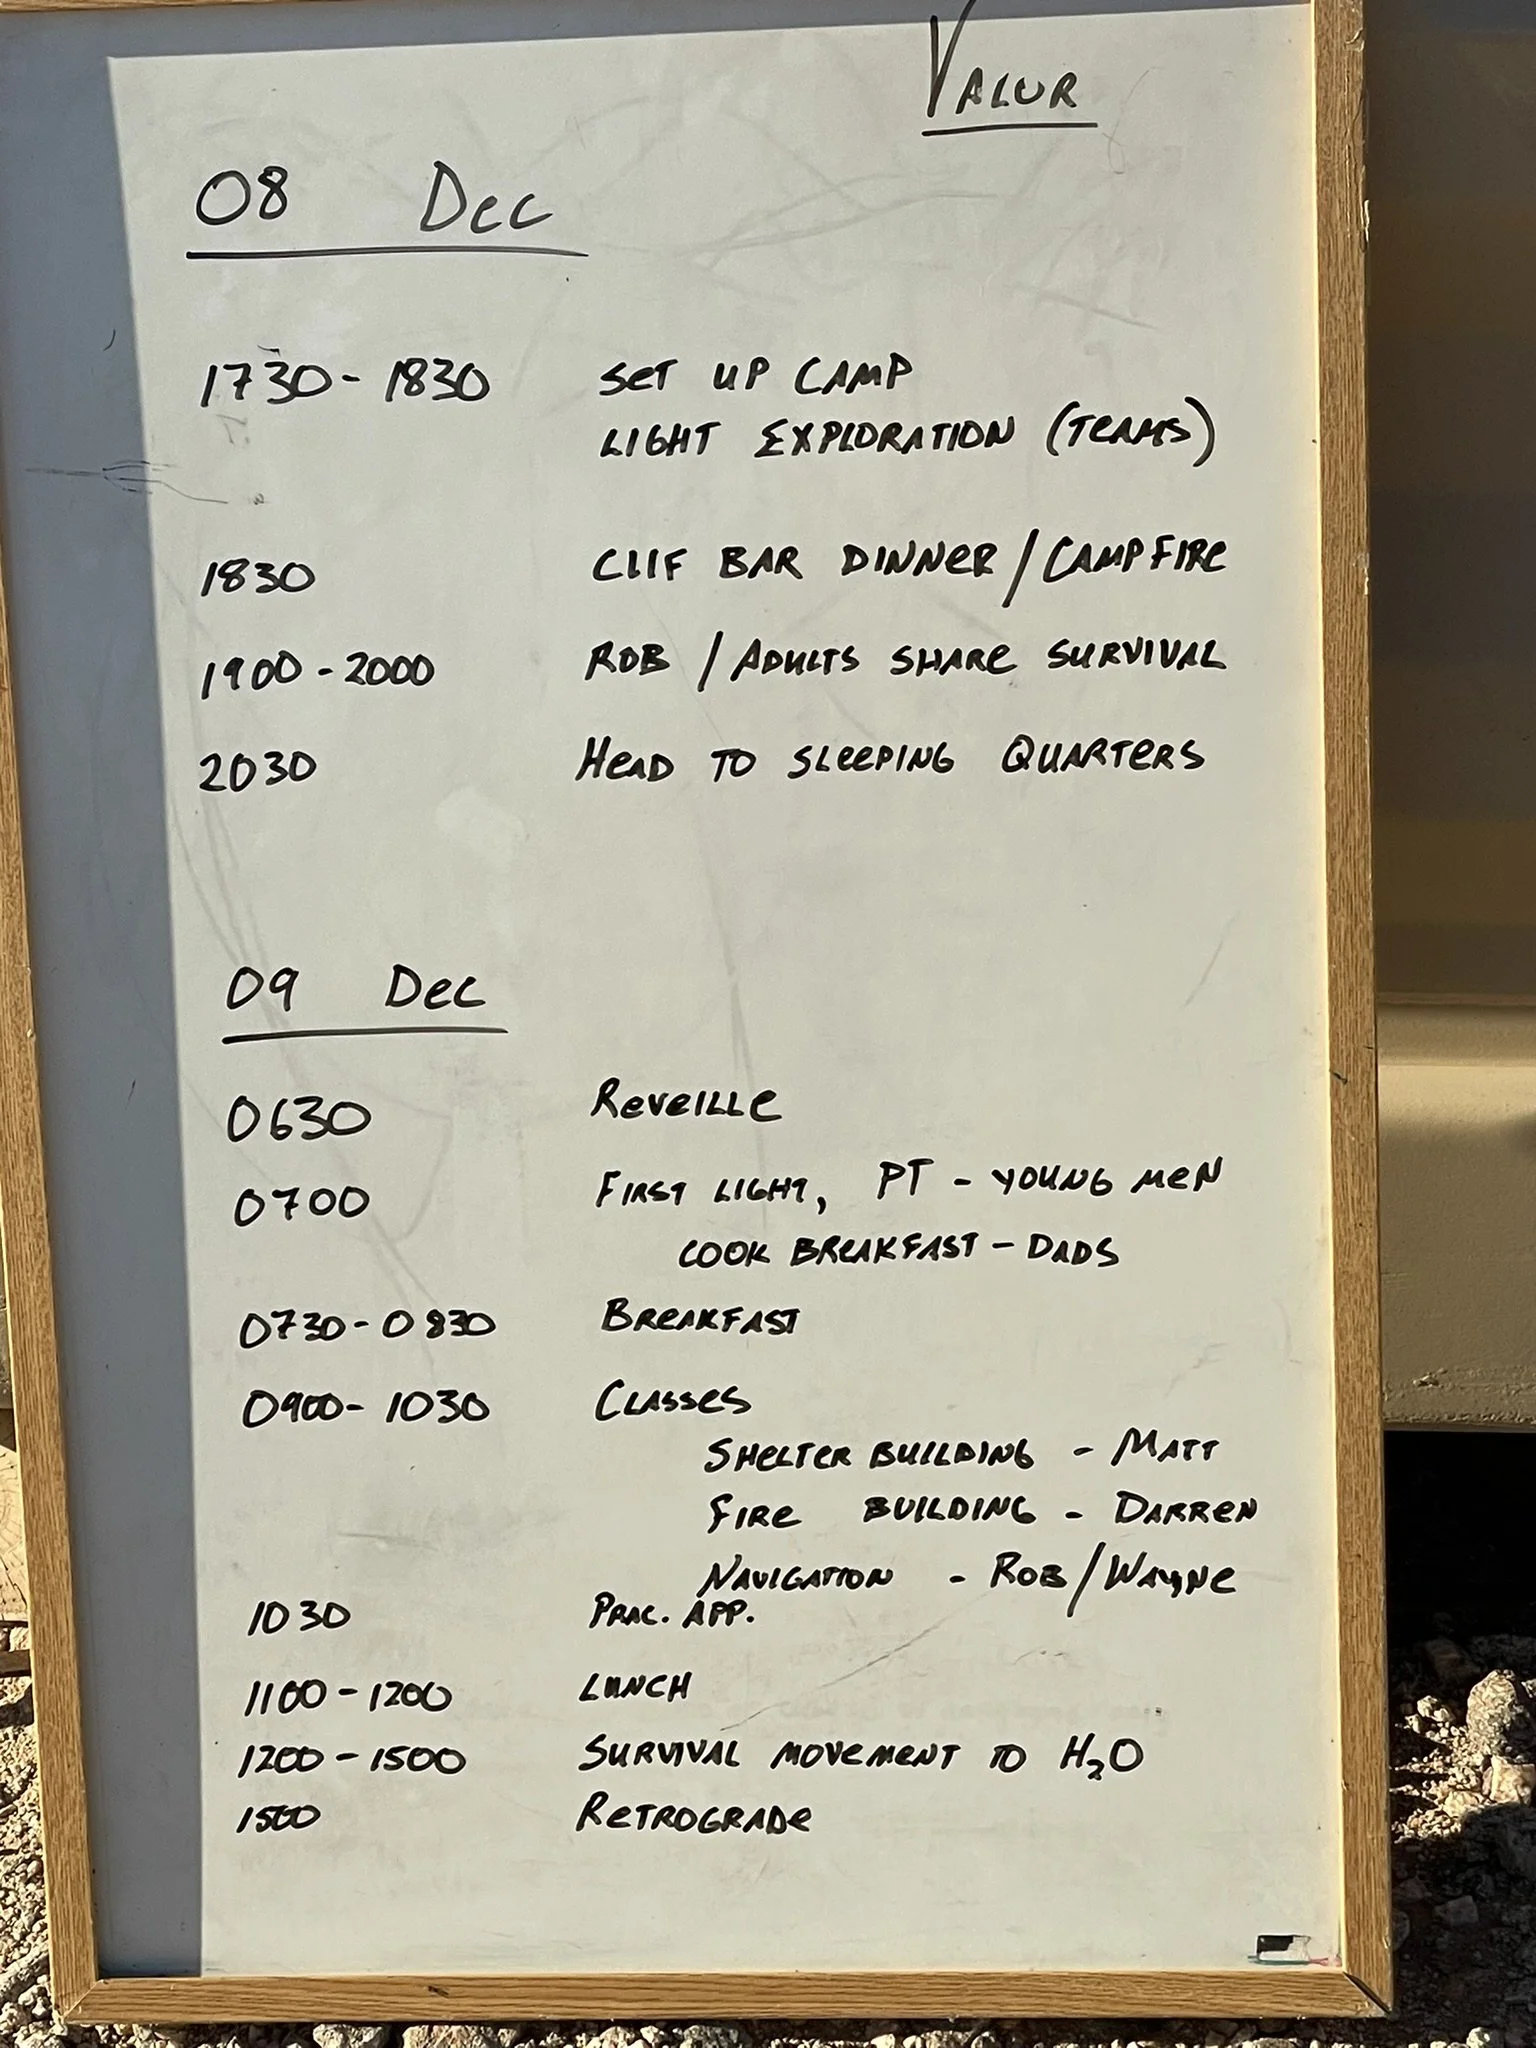 VALUR
08 Dec
1730 - 1830 SET UP CAMP
LIGHT EXPLORATION (TEAMS)
1830 CLIF BAR DINNER / CAMPFIRE
1900 - 2000 ROB / ADULTS SHARE SURVIVAL
2030 HEAD TO SLEEPING QUARTERS
09 Dec
0630 REVEILLE
0700 FIRST LIGHT, PT - YOUNG MEN
COOK BREAKFAST - DADS
0730 - 0830 BREAKFAST
0900 - 1030 CLASSES
SHELTER BUILDING - MATT
FIRE BUILDING - DARREN
NAVIGATION - ROB / WAYNE
1030 PRAC. APP.
1100 - 1200 LUNCH
1200 - 1500 SURVIVAL MOVEMENT TO H₂O
1500 RETROGRADE